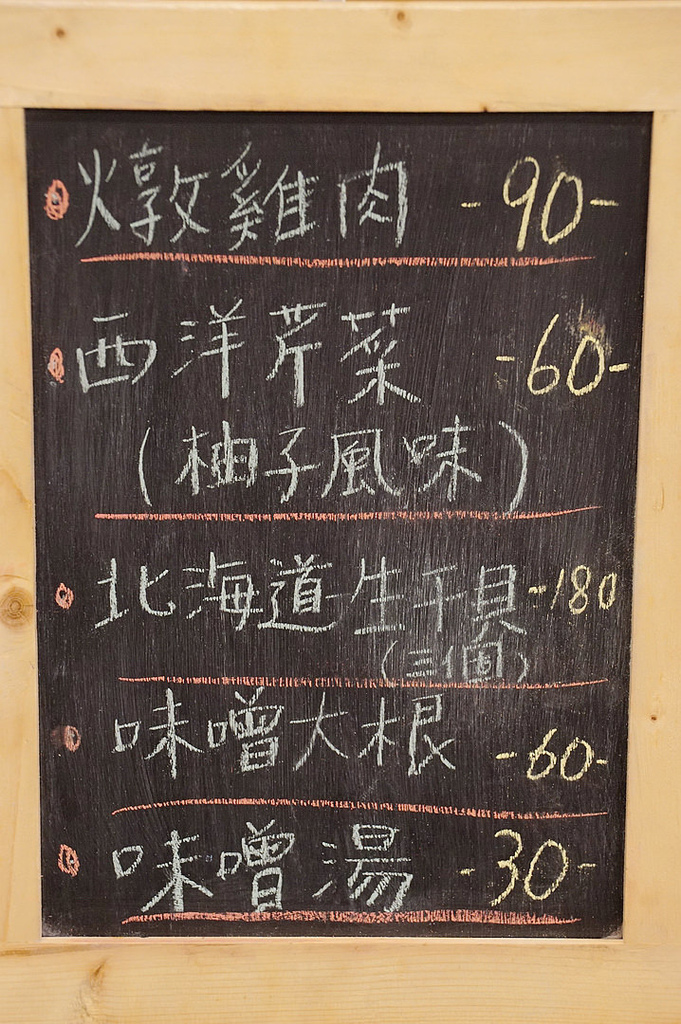 燉雞肉 -90-
西洋芹菜 -60-
(柚子風味)
北海道生干貝 -180
(三個)
味噌大根 -60-
味噌湯 -30-